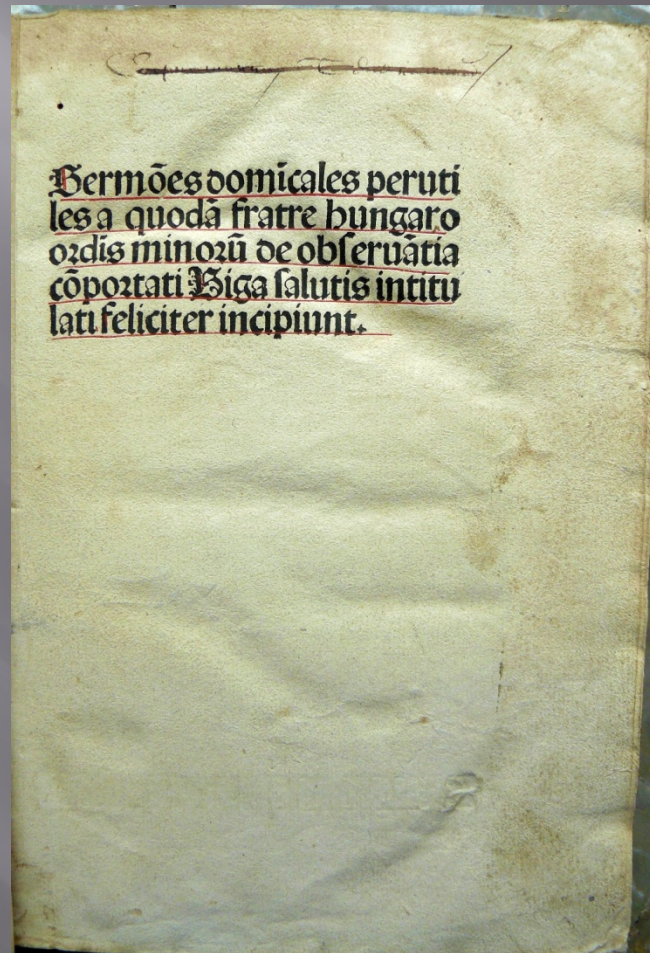 Sermões domĩcales peruti
les a quodã fratre hungaro
ordĩs minorũ de obſeruãtia
cõportati Biga ſalutis intitu
lati feliciter incipiunt.